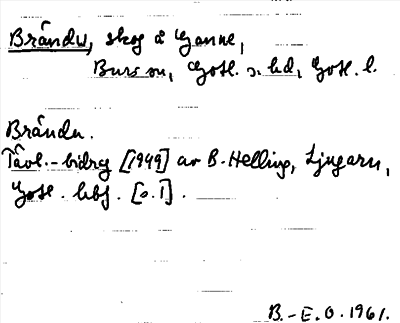 Brändu, skog å Ganne,
Burs sn, Gotl. s. hd, Gotl. l.
Brändu.
Tävl.-bidrag [1949] av B. Hellings, Ljugarn,
Gotl. hbf. [o.1].
B.-E. O. 1961.